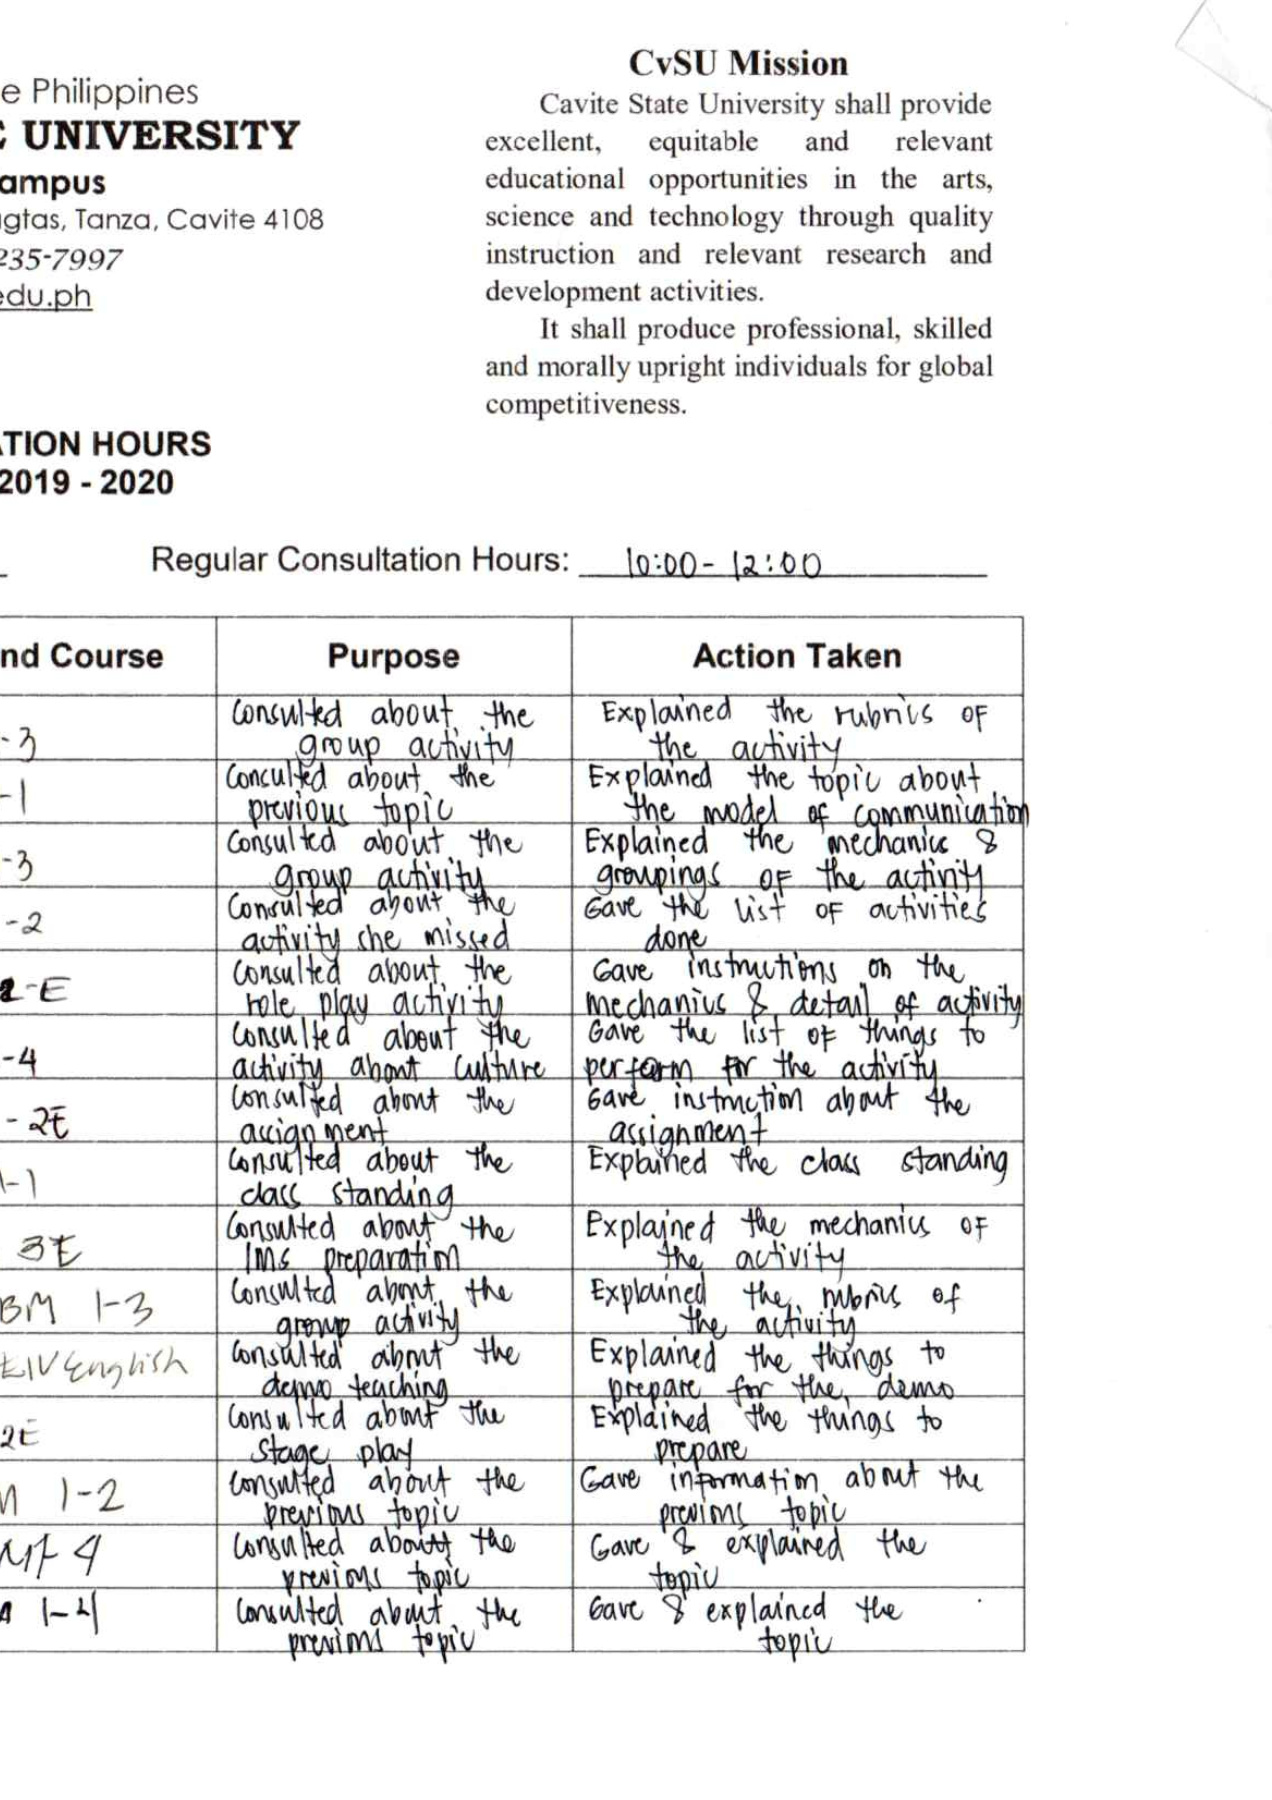 e Philippines
C UNIVERSITY
ampus
gtas, Tanza, Cavite 4108
235-7997
edu.ph
CvSU Mission
Cavite State University shall provide
excellent, equitable and relevant
educational opportunities in the arts,
science and technology through quality
instruction and relevant research and
development activities.
It shall produce professional, skilled
and morally upright individuals for global
competitiveness.
ATION HOURS
2019 - 2020
Regular Consultation Hours: 10:00 - 12:00
nd Course Purpose Action Taken
-3
Consulted about the
group activity
Explained the rubrics of
the activity
-1
Conculted about the
previous topic
Explained the topic about
the model of communication
-3
Consulted about the
group activity
Explained the mechanics &
groupings of the activity
-2
Consulted about the
activity she missed
Gave the list of activities
done
2-E
Consulted about the
role play activity
Gave instructions on the
mechanics & detail of activity
-4
Consulted about the
activity about culture
Gave the list of things to
perform for the activity
- 2E
Consulted about the
assignment
Gave instruction about the
assignment
1-1
Consulted about the
class standing
Explained the class standing
3E
Consulted about the
IMs preparation
Explained the mechanics of
the activity
BM 1-3
Consulted about the
group activity
Explained the rubrics of
the activity
English
Consulted about the
demo teaching
Explained the things to
prepare for the demo
2E
Consulted about the
stage play
Explained the things to
prepare
M 1-2
Consulted about the
previous topic
Gave information about the
previous topic
4
Consulted about the
previous topic
Gave & explained the
topic
1-4
Consulted about the
previous topic
Gave & explained the
topic